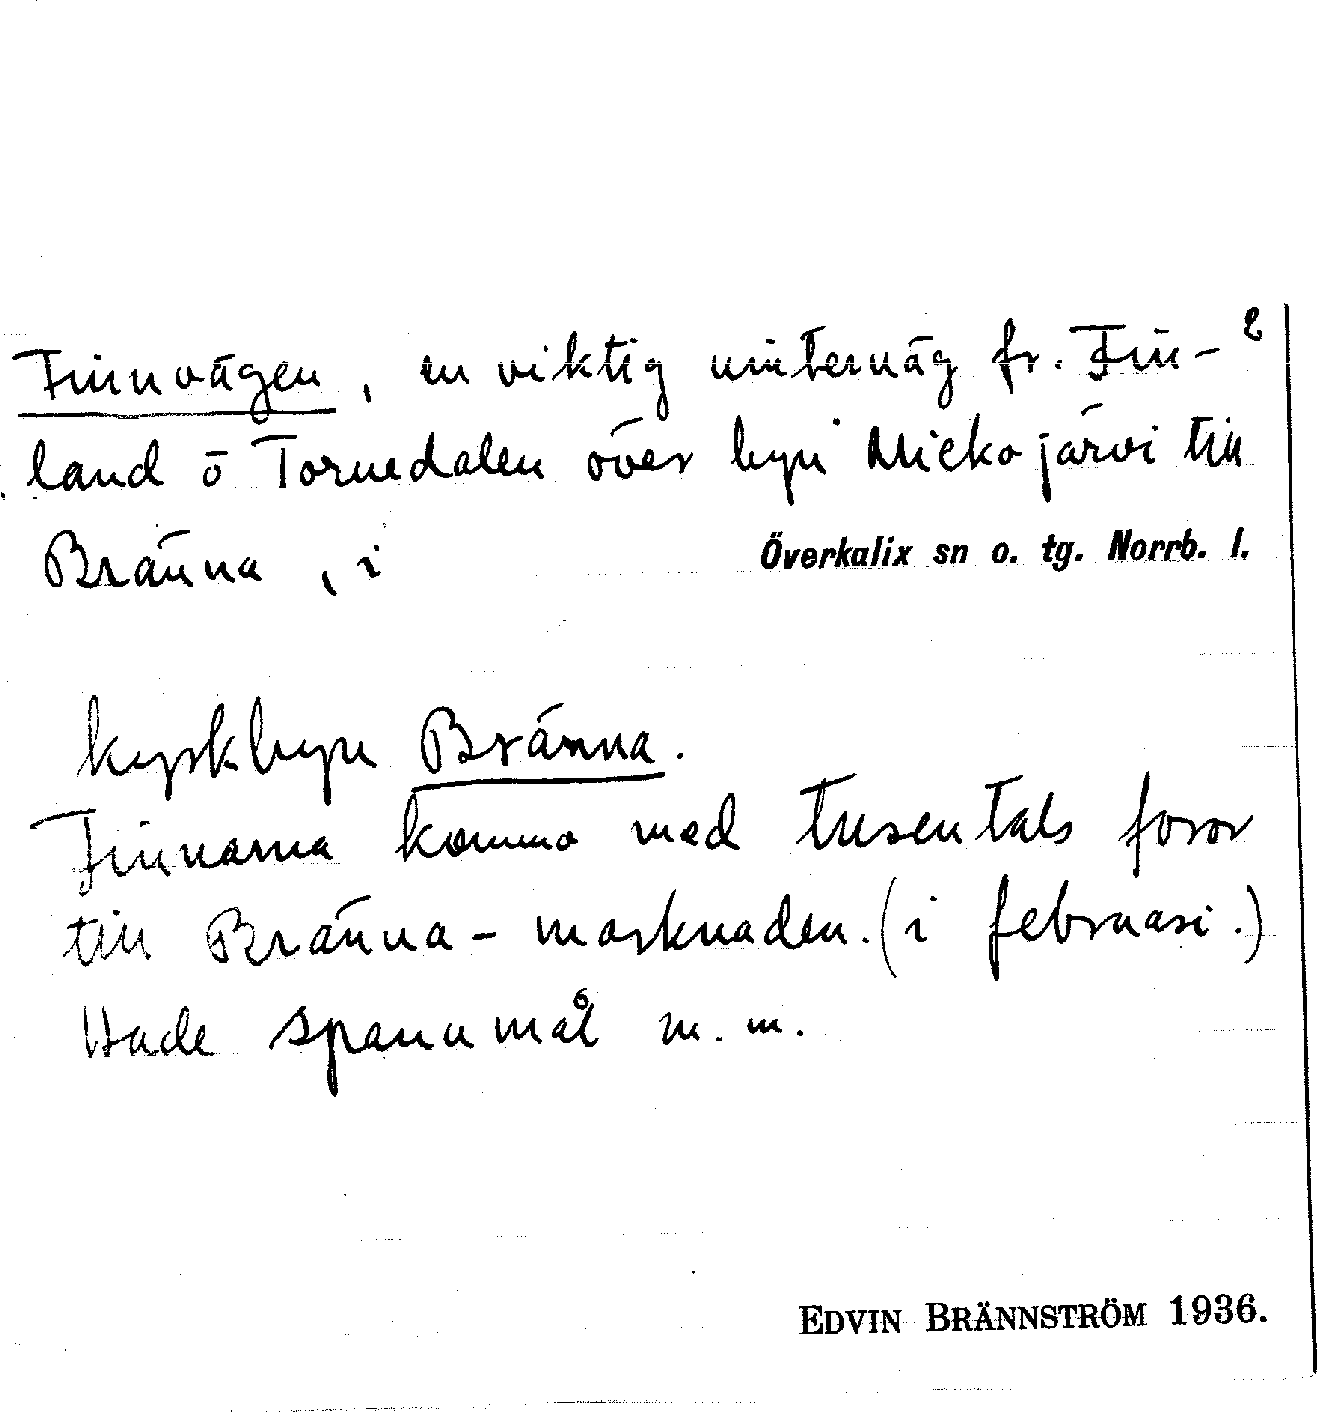 2
Finnvägen, en viktig vinterväg fr. Fin-
land o Tornedalen över byn Mickojärvi till
Bränna, i Överkalix sn o. tg. Norrb. l.
kyrkbyn Bränna.
Finnarna kommo med tusentals foror
till Bränna-marknaden. (i februari.)
Hade spannmål m.m.
EDVIN BRÄNNSTRÖM 1936.